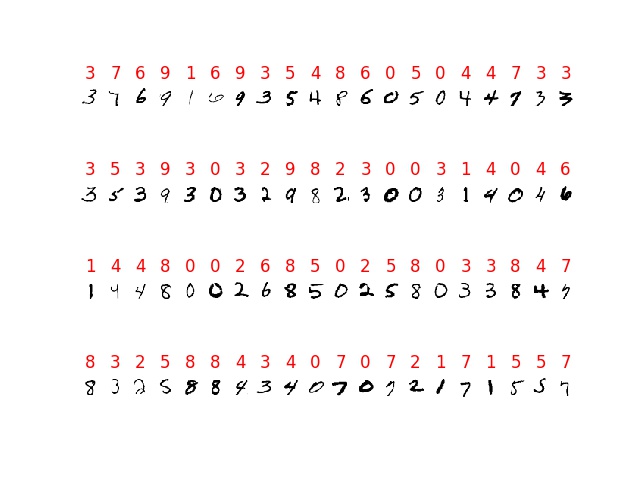 3 7 6 9 1 6 9 3 5 4 8 6 0 5 0 4 4 7 3 3
3 7 6 9 1 6 9 3 5 4 8 6 0 5 0 4 4 7 3 3
3 5 3 9 3 0 3 2 9 8 2 3 0 0 3 1 4 0 4 6
3 5 3 9 3 0 3 2 9 8 2 3 0 0 3 1 4 0 4 6
1 4 4 8 0 0 2 6 8 5 0 2 5 8 0 3 3 8 4 7
1 4 4 8 0 0 2 6 8 5 0 2 5 8 0 3 3 8 4 7
8 3 2 5 8 8 4 3 4 0 7 0 7 2 1 7 1 5 5 7
8 3 2 5 8 8 4 3 4 0 7 0 7 2 1 7 1 5 5 7